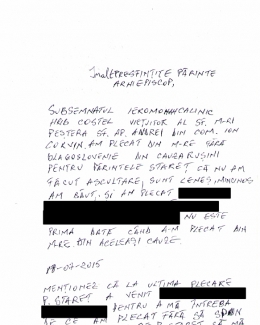 Înalt PREASFINȚITE PĂRINTE
ARHIEPISCOP,
SUBSEMNATUL IEROMONAH CALINIC
COSTEL VIEȚUITOR AL SF. M-RI
PEȘTERA SF. AP. ANDREI DIN COM. ION
CORVIN, AM PLECAT DIN M-RE FĂRĂ
BLAGOSLOVENIE DIN CAUZA RUȘINII
PENTRU PĂRINTELE STAREȚ, CĂ NU AM
FĂCUT ASCULTARE, SUNT LENEȘ, MINCINOS
AM BĂUT, ȘI AM PLECAT
NU ESTE
PRIMA DATĂ CÂND A-M PLECAT DIN
M-RE. DIN ACELEAȘI CAUZE.
-07-2015
MENȚIONEZ CĂ LA ULTIMA PLECARE
P. STAREȚ A VENIT
PENTRU A MĂ ÎNTREBA
DE CE AM PLECAT FĂRĂ SĂ SPUN